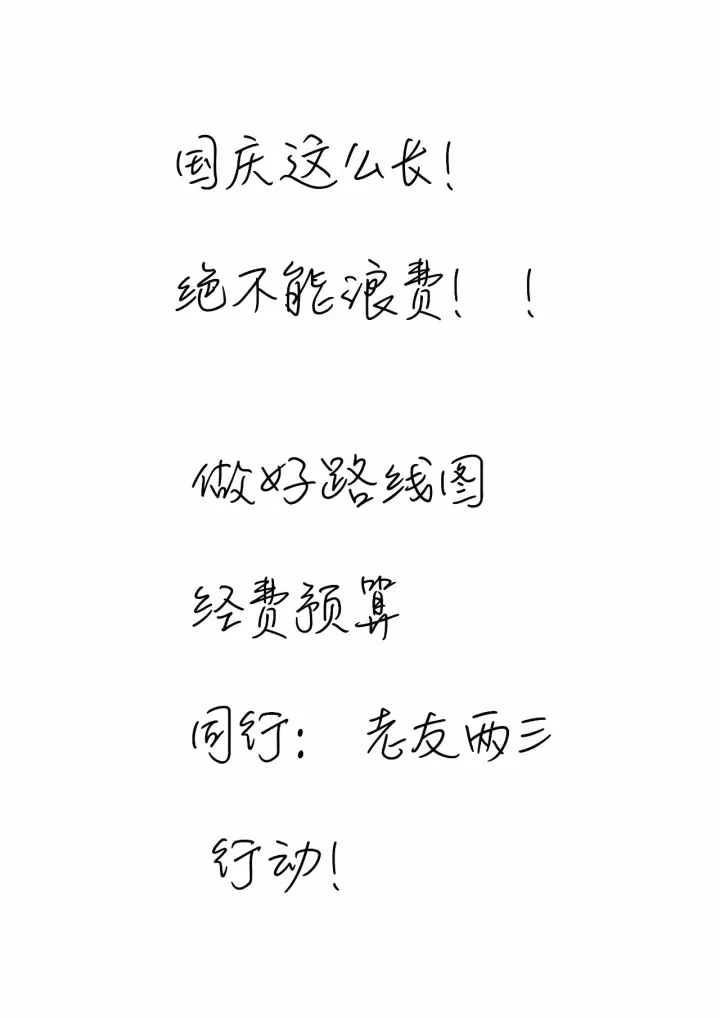 国庆这么长！
绝不能浪费！ ！
做好路线图
经费预算
同行： 老友两三
行动！